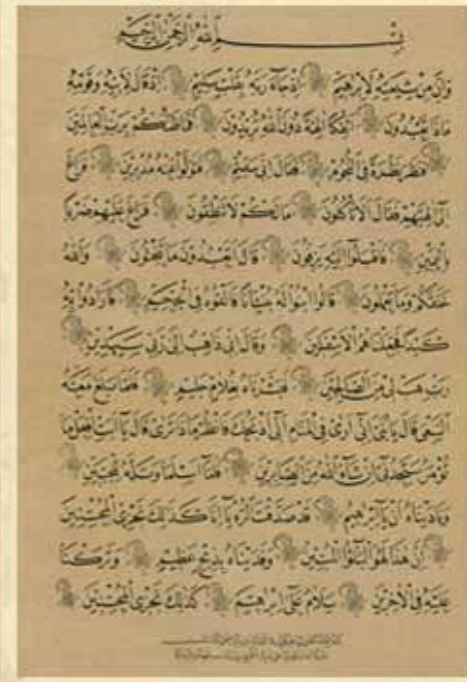 بسم الله الرحمن الرحيم
وان من شيعته لابرهيم اذ جاء ربه بقلب سليم اذ قال لابيه وقومه
ماذا تعبدون ائفكا الهة دون الله تريدون فما ظنكم برب العالمين
فنظر نظرة في النجوم فقال اني سقيم فتولوا عنه مدبرين فراغ
الى الهتهم فقال الا تاكلون مالكم لا تنطقون فراغ عليهم ضربا
باليمين فاقبلوا اليه يزفون قال اتعبدون ما تنحتون والله
خلقكم وما تعملون قالوا ابنوا له بنيانا فالقوه في الجحيم فارادوا به
كيدا فجعلناهم الاسفلين وقال اني ذاهب الى ربي سيهدين
رب هب لي من الصالحين فبشرناه بغلام حليم فلما بلغ معه
السعي قال يا بني اني ارى في المنام اني اذبحك فانظر ماذا ترى قال يا ابت افعل ما
تؤمر ستجدني ان شاء الله من الصابرين فلما اسلما وتله للجبين
وناديناه ان يا ابرهيم قد صدقت الرؤيا انا كذلك نجزي المحسنين
ان هذا لهو البلؤا المبين وفديناه بذبح عظيم وتركنا
عليه في الاخرين سلام على ابرهيم كذلك نجزي المحسنين